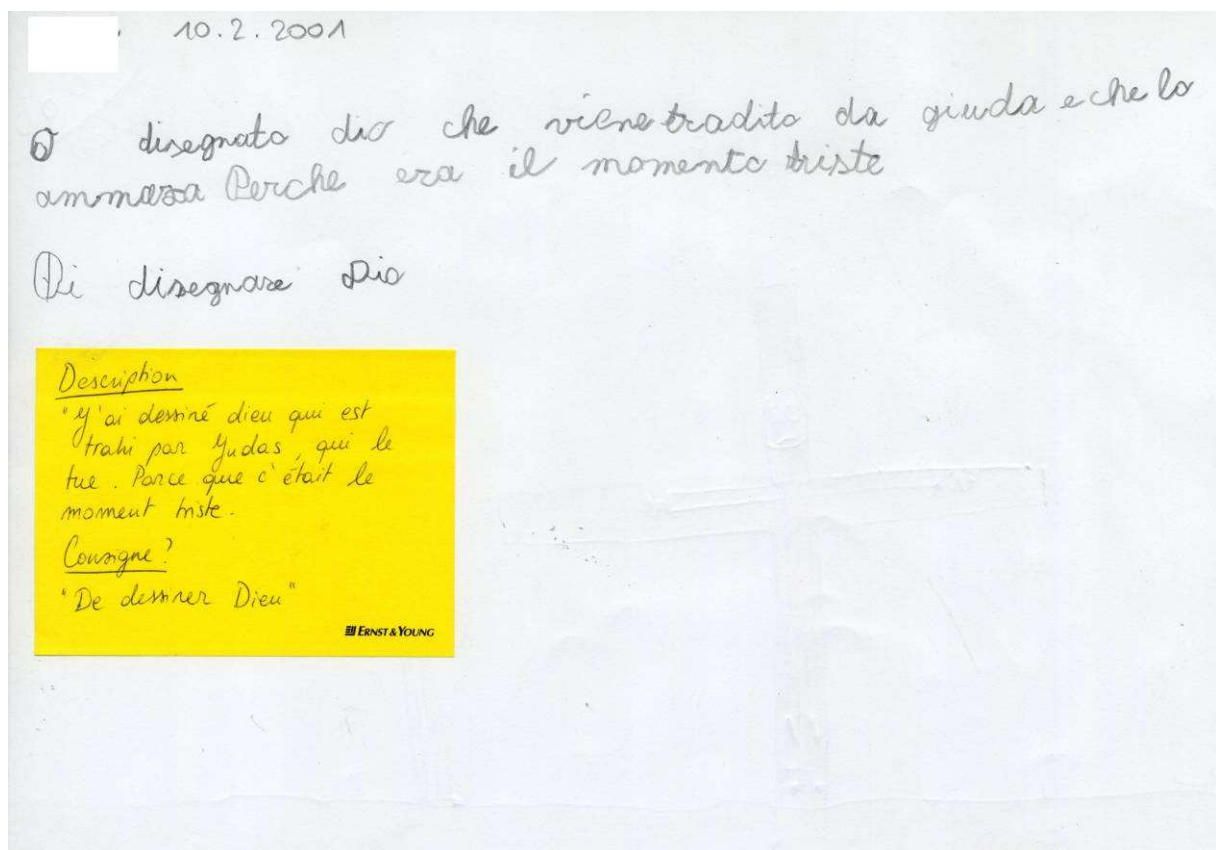 10.2.2001
O disegnato dio che viene tradito da giuda e che lo
ammazza Perche era il momento triste
Di disegnare Dio
Description
"J'ai dessiné dieu qui est
trahi par Judas, qui le
tue. Parce que c'était le
moment triste.
Consigne?
"De dessiner Dieu"
ERNST & YOUNG